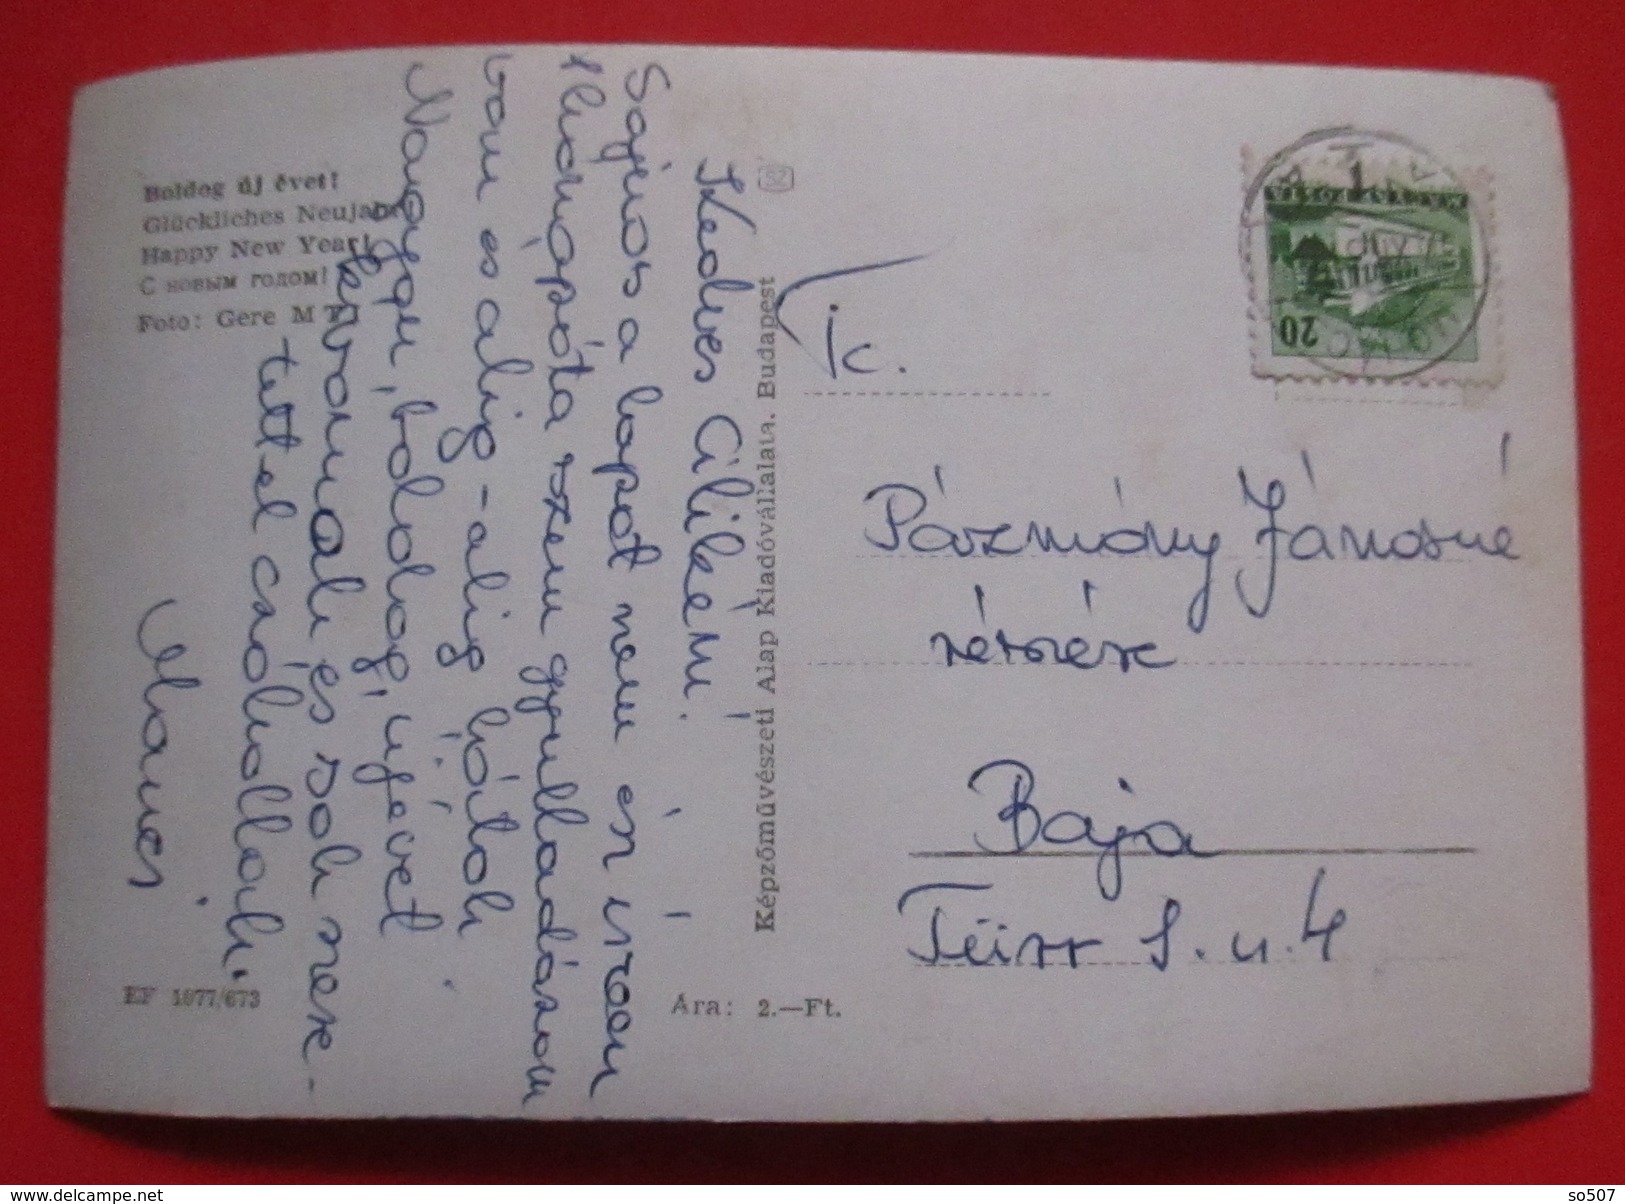 Boldog új évet!
Glückliches Neujahr
Happy New Year!
С новым годом!
Foto: Gere MTI
EF 1077/673
Ára: 2.—Ft.
Képzőművészeti Alap Kiadóvállalata. Budapest
Kedves Cilikém!
Sajnos a lapot nem én írom
1 hónapóta szem gyulladásom
van és alig-alig látok.
Nagyon, boldog, újévet
kívánok és sok szere-
tettel csókollak.
Mancsi
Tc.
Pázmány Jánosné
részére
Baja
Türr I. u. 4
20
so507
www.delcampe.net